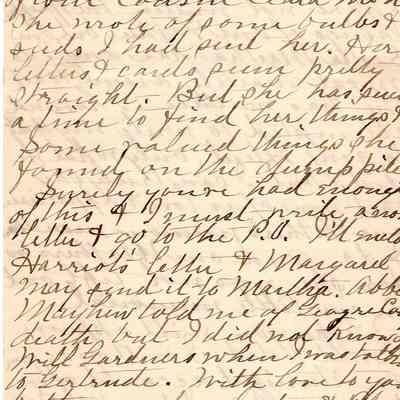 from Cousin Clara
She wrote of some bulbs &
seeds I had sent her. Her
letters & cards seem pretty
straight. But she has such
a time to find her things &
some valued things she
found on the dump pile
Surely you've had enough
of this & I must write
letter & go to the P.O. I'll
Harriot's letter & Margaret
may send it to Martha. Abbe
Mayhew told me of George
death, but I did not know
Will Gardners when I was
to Gertrude. With love to you